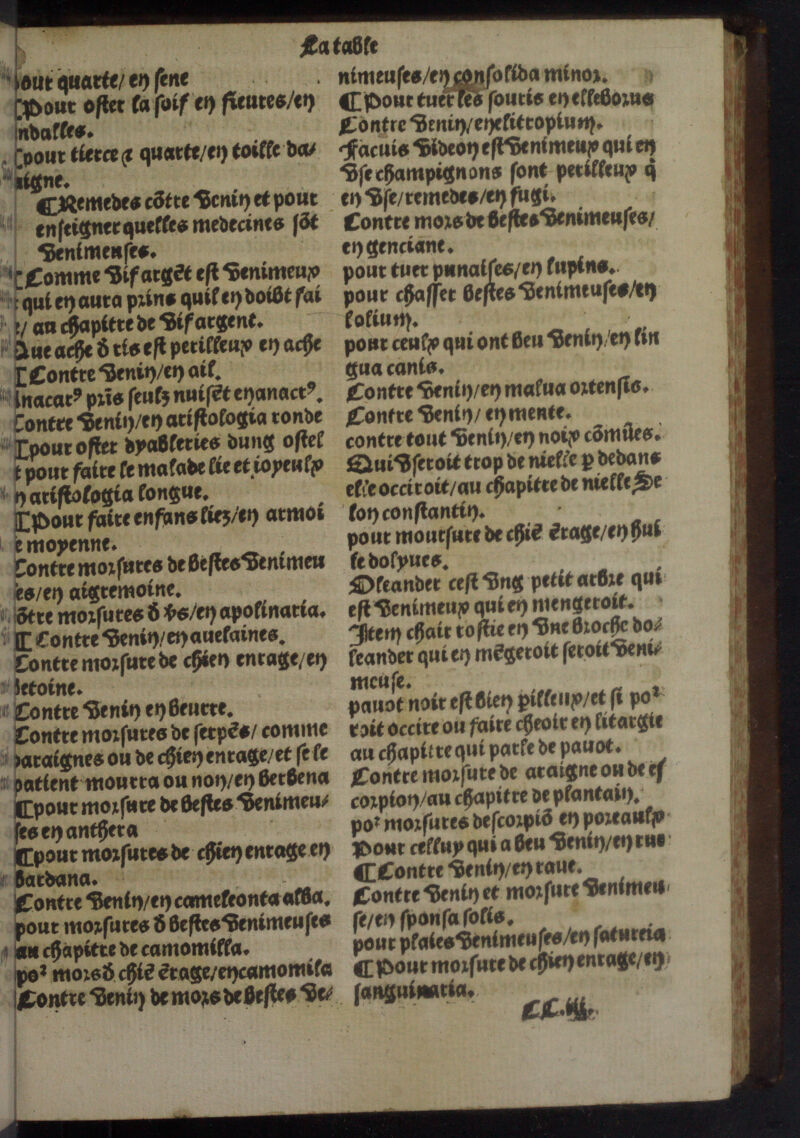 La table
pour quarte/ en sene
Pour oster la soif en fieures/en
andalles.
pour tierce ⁊ quarte/en toille da/
raigne.
Remedes cõtre venin et pour
enseigner quelles medecines sõt
venimeuses.
Comme vif argẽt est venimeux
qui en aura prins quil en doibt fai
re/ au chapitre de vif argent.
Que ache d ris est perilleux en ache
Contre venin/en ail.
nuisẽt en anacar⁹.
Contre venin/en aristologia ronde
pour oster dyableries dung ostel
et pour faire le malade lie et ioyeulx
en aristologia longue.
Pour faire enfans liez/en armoi
se moyenne.
Contre morsures de bestes venimeu
ses/en aigremoine.
Cõtre morsures d v̾s/en apolinaria.
Contre venin/en auelaines.
Contre morsure de chien enrage/en
betoine.
Contre venin en beurre.
Contre morsures de serpẽs/ comme
daraignes ou de chien enrage/et se le
patient mourra ou non/en berbena
pour morsure de bestes venimeu/
ses en anthera
pour morsures de chien enrage en
bardana.
Contre venin/en cameleonta alba.
pour morsures d bestes venimeuses
au chapitre de camomilla.
po² mors d chiẽ ẽrage/en camomila
Contre venin de mors de bestes ve/
nimeuses/en consolida minor.
Pour tuer les souris en elleborus
Contre venin/en elitropium.
Facuis videon est venimeux qui en
vse champignons sont perilleux q̃
en vse/remedes/en fugi.
Contre mors de bestes venimeuses/
en genciane.
pour tuer punaises/en lupins.
pour chasser bestes venimeuses/en
lolium.
pour ceulx qui ont beu venin/en lin
gua canis.
Contre venin/en malua ortensis.
Contre venin/ en mente.
contre tout venin/en noix cõmũes.
Qui vseroit trop de nielle p dedans
elle occiroit/au chapitre de nielle Se
lon constantin.
pour moursure de chiẽ ẽrage/en hui
le dolyues.
Oleander cest vng petit arbre qui
est venimeux qui en mengeroit.
Item chair rostie en vne broche do/
leander qui en mẽgeroit seroit veni/
meuse.
pauot noir est bien pilleux/et si po²
roit occire ou faire cheoir en litargie
au chapitre qui parle de pauot.
Contre morsure de araigne ou de es
corpion/au chapitre de plantain.
po² morsures descorpiõ en poreaulx
Pour celluy qui a beu venin/en rue
Contre venin/en raue.
Contre venin et morsure venimeu
se/en sponsa solis.
pour plaies venimeuses/en satureia
Pour morsure de chien enrage/en
sanguinaria.
CC.iii.